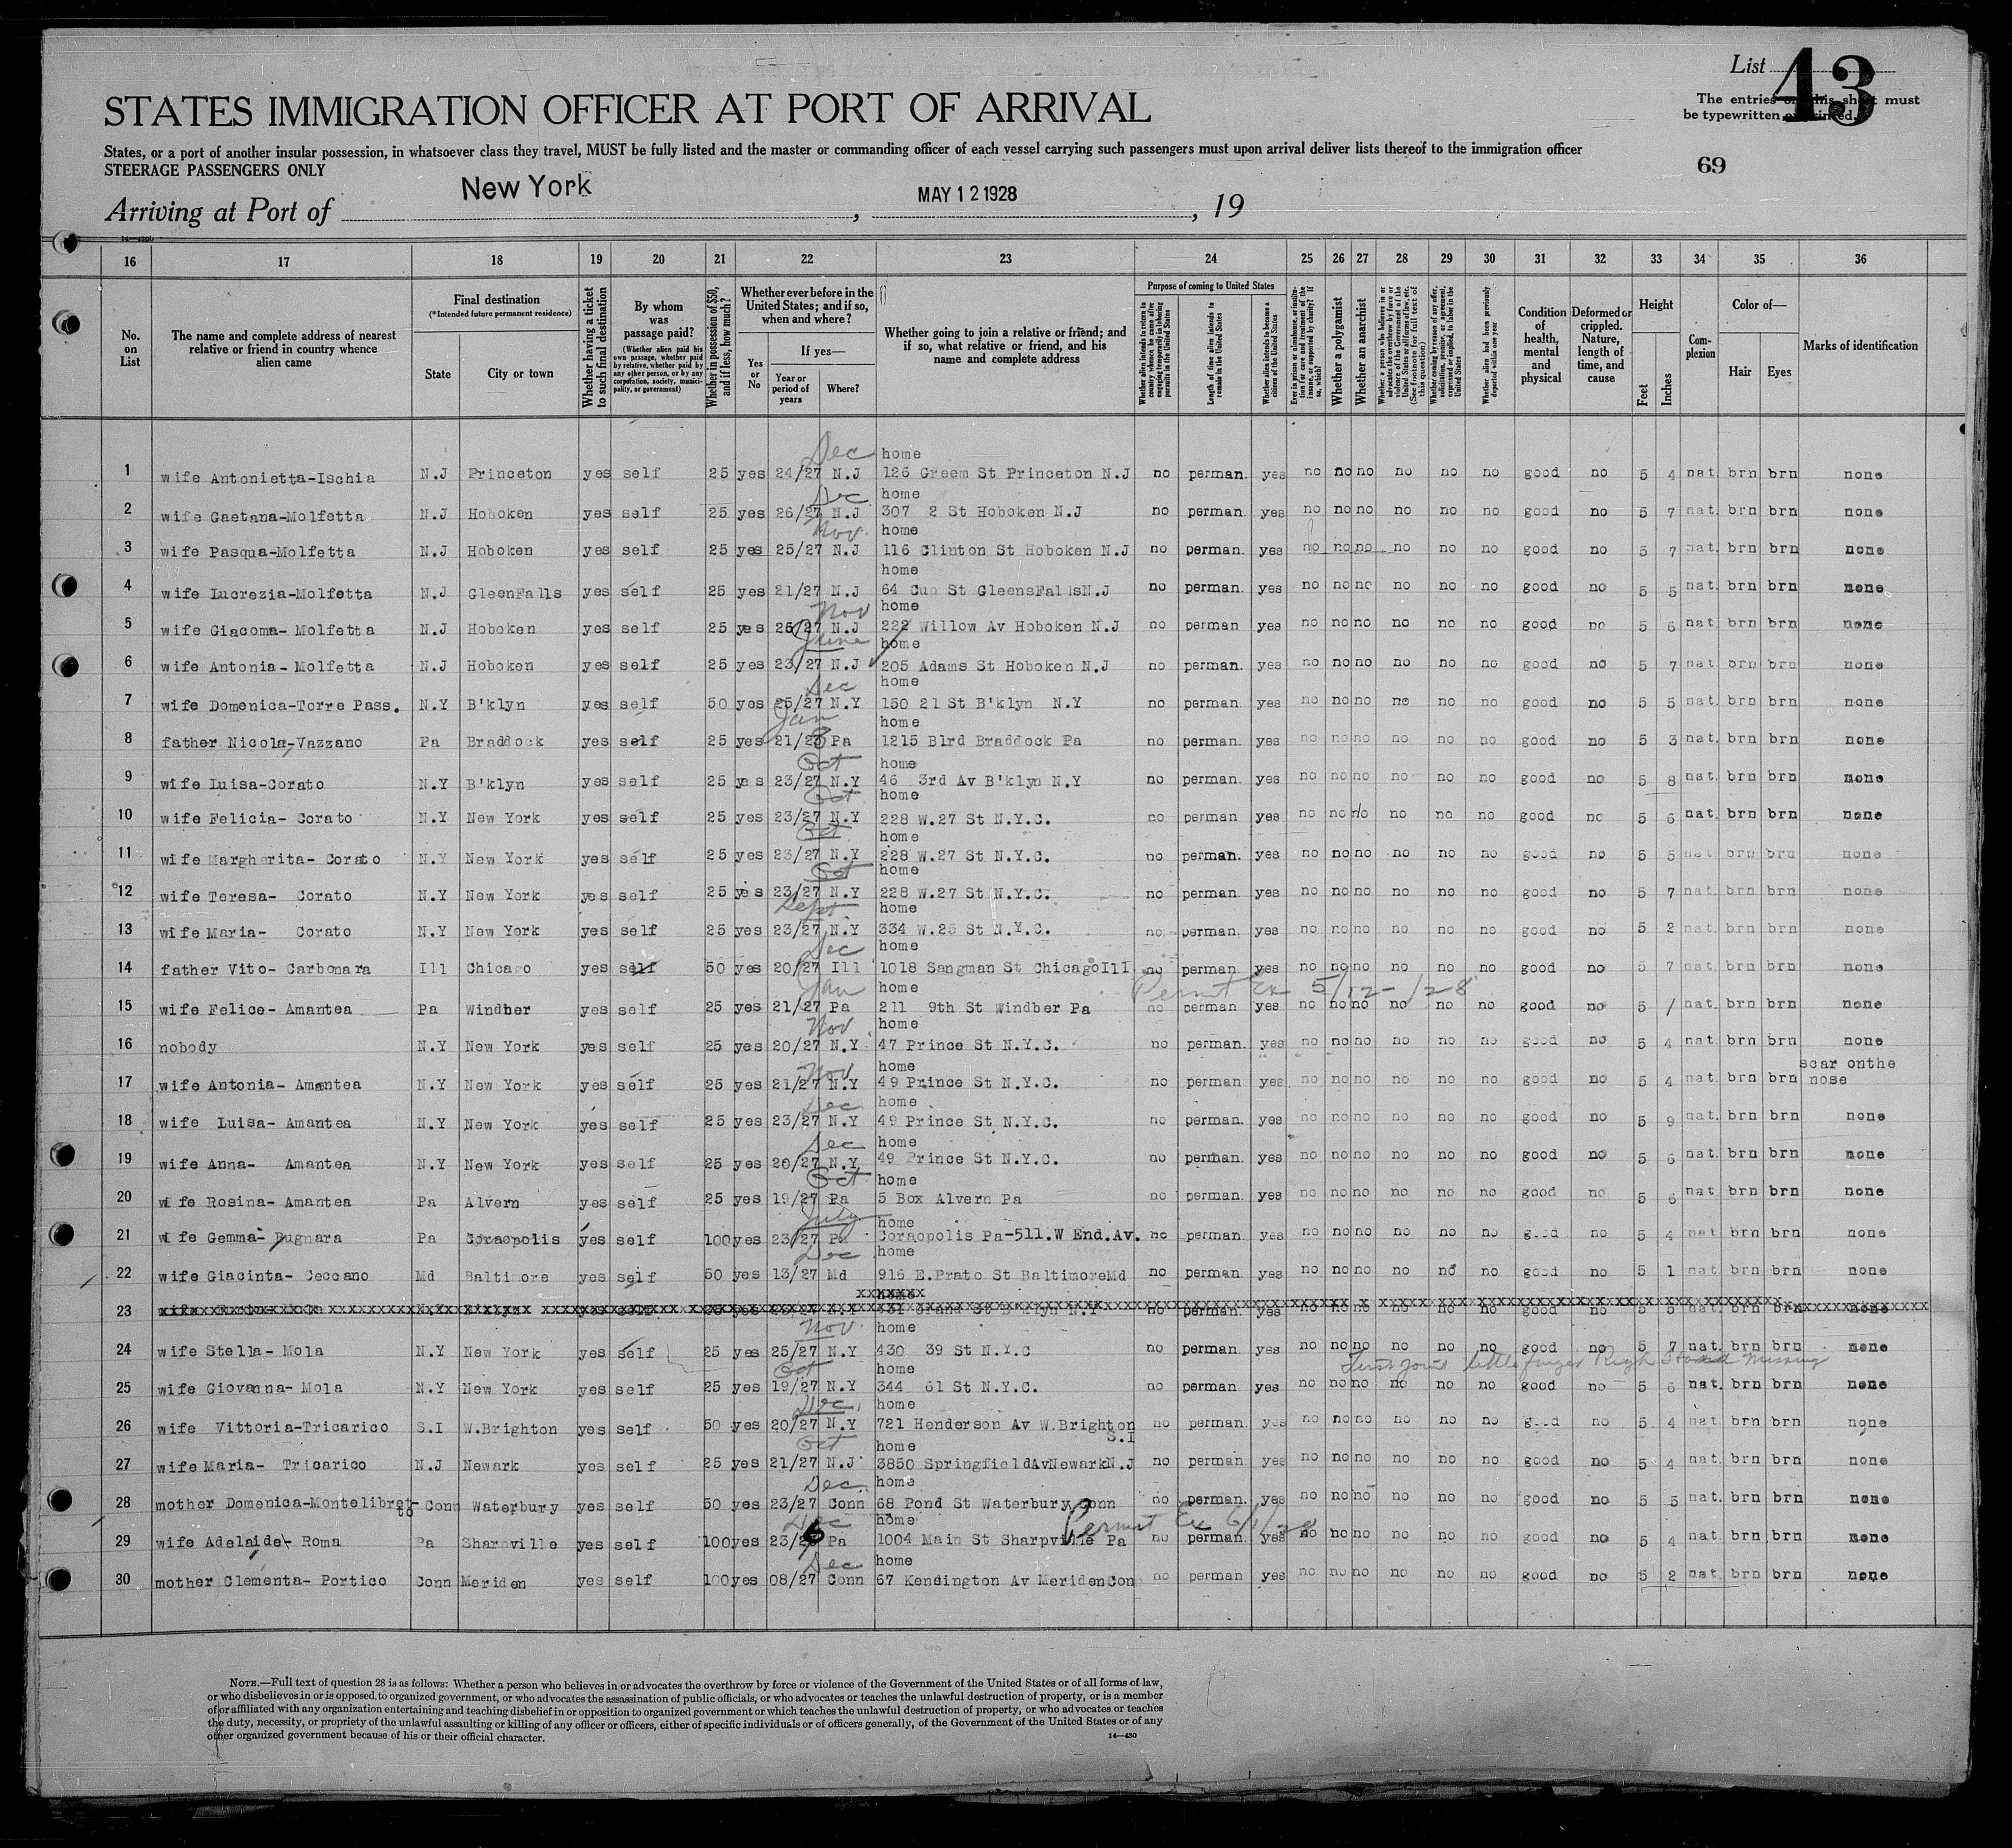 List 43
STATES IMMIGRATION OFFICER AT PORT OF ARRIVAL
The entries on this sheet must
be typewritten or printed.
States, or a port of another insular possession, in whatsoever class they travel, MUST be fully listed and the master or commanding officer of each vessel carrying such passengers must upon arrival deliver lists thereof to the immigration officer
STEERAGE PASSENGERS ONLY
69
Arriving at Port of New York, MAY 12 1928, 19
16 17 18 19 20 21 22 23 24 25 26 27 28 29 30 31 32 33 34 35 36
No. on List
The name and complete address of nearest relative or friend in country whence alien came
Final destination
(*Intended future permanent residence)
State
City or town
Whether having a ticket to such final destination
By whom was passage paid?
(Whether alien paid his own passage, whether paid by relative, whether paid by any other person, or by any corporation, society, municipality, or government)
Whether in possession of $50, and if less, how much?
Whether ever before in the United States; and if so, when and where?
Yes or No
If yes—
Year or period of years
Where?
Whether going to join a relative or friend; and if so, what relative or friend, and his name and complete address
Purpose of coming to United States
Length of time alien intends to remain in the United States
Whether alien intends to become a citizen of the United States
Whether a polygamist
Whether an anarchist
Whether alien had been previously deported within one year
Condition of health, mental and physical
Deformed or crippled. Nature, length of time, and cause
Height
Feet
Inches
Complexion
Color of—
Hair
Eyes
Marks of identification
1 wife Antonietta-Ischia N.J Princeton yes self 25 yes Dec 24/27 N.J home 126 Greem St Princeton N.J no perman. yes no no no no no no good no 5 4 nat. brn brn none
2 wife Gaetana-Molfetta N.J Hoboken yes self 25 yes Dec 26/27 N.J home 307 2 St Hoboken N.J no perman. yes no no no no no no good no 5 7 nat. brn brn none
3 wife Pasqua-Molfetta N.J Hoboken yes self 25 yes Nov. 25/27 N.J home 116 Clinton St Hoboken N.J no perman. yes no no no no no no good no 5 7 nat. brn brn none
4 wife Lucrezia-Molfetta N.J GleenFalls yes self 25 yes 21/27 N.J home 64 Cup St GleensFallsN.J no perman. yes no no no no no no good no 5 5 nat. brn brn none
5 wife Giacoma- Molfetta N.J Hoboken yes self 25 yes Nov 26/27 N.J home 222 Willow Av Hoboken N.J no perman yes no no no no no no good no 5 6 nat. brn brn none
6 wife Antonia- Molfetta N.J Hoboken yes self 25 yes June 23/27 N.J home 205 Adams St Hoboken N.J no perman. yes no no no no no no good no 5 7 nat. brn brn none
7 wife Domenica-Torre Pass. N.Y B'klyn yes self 50 yes Dec 25/27 N.Y home 150 21 St B'klyn N.Y no perman. yes no no no no no no good no 5 5 nat. brn brn none
8 father Nicola-Vazzano Pa Braddock yes self 25 yes Jan 21/28 Pa home 1215 Blrd Braddock Pa no perman. yes no no no no no no good no 5 3 nat. brn brn none
9 wife Luisa-Corato N.Y B'klyn yes self 25 yes Oct 23/27 N.Y home 46 3rd Av B'klyn N.Y no perman. yes no no no no no no good no 5 8 nat. brn brn none
10 wife Felicia- Corato N.Y New York yes self 25 yes Oct 23/27 N.Y home 228 W.27 St N.Y.C. no perman yes no no no no no no good no 5 6 nat. brn brn none
11 wife Margherita- Corato N.Y New York yes self 25 yes Oct 23/27 N.Y home 228 W.27 St N.Y.C. no perman. yes no no no no no no good no 5 5 nat brn brn none
12 wife Teresa- Corato N.Y New York yes self 25 yes Oct 23/27 N.Y home 228 W.27 St N.Y.C. no perman. yes no no no no no no good no 5 7 nat. brn brn none
13 wife Maria- Corato N.Y New York yes self 25 yes Sept. 23/27 N.Y home 334 W.25 St N.Y.C. no perman. yes no no no no no no good no 5 2 nat. brn brn none
14 father Vito- Carbonara Ill Chicago yes self 50 yes Dec 20/27 Ill home 1018 Sangman St ChicagoIll no perman. yes no no no no no no good no 5 7 nat. brn brn none
Permit Ex 5/12-/28
15 wife Felice- Amantea Pa Windber yes self 25 yes Jan 21/27 Pa home 211 9th St Windber Pa no perman yes no no no no no no good no 5 / nat. brn brn none
16 nobody N.Y New York yes self 25 yes Nov. 20/27 N.Y home 47 Prince St N.Y.C. no perman. yes no no no no no no good no 5 4 nat. brn brn none
17 wife Antonia- Amantea N.Y New York yes self 25 yes Nov 21/27 N.Y home 49 Prince St N.Y.C. no perman. yes no no no no no no good no 5 4 nat. brn brn scar onthe nose
18 wife Luisa- Amantea N.Y New York yes self 25 yes Dec. 23/27 N.Y home 49 Prince St N.Y.C. no perman. yes no no no no no no good no 5 9 nat. brn brn none
19 wife Anna- Amantea N.Y New York yes self 25 yes Dec 20/27 N.Y home 49 Prince St N.Y.C. no perman. yes no no no no no no good no 5 6 nat. brn brn none
20 wife Rosina- Amantea Pa Alvern yes self 25 yes Oct. 19/27 Pa home 5 Box Alvern Pa no perman. yes no no no no no no good no 5 6 nat brn brn none
21 wife Gemma- Bugnara Pa Coraopolis yes self 100 yes July 23/27 Pa home Coraopolis Pa-511.W End.Av. no perman. yes no no no no no no good no 5 4 nat brn brn none
22 wife Giacinta- Ceccano Md Baltimore yes self 50 yes Dec 13/27 Md home 916 E.Prato St BaltimoreMd no perman. yes no no no no no no good no 5 1 nat. brn brn none
23 N.Y B'klyn yes self N.Y no perman. yes no no no no no no good no 5 5 nat. brn brn none
24 wife Stella- Mola N.Y New York yes self 25 yes Nov. 25/27 N.Y home 430 39 St N.Y.C no perman. yes no no no no no no good no 5 7 nat. brn brn none
first joint little finger Right Hand missing
25 wife Giovanna- Mola N.Y New York yes self 25 yes Oct 19/27 N.Y home 344 61 St N.Y.C. no perman yes no no no no no no good no 5 6 nat. brn brn none
26 wife Vittoria-Tricarico S.I W.Brighton yes self 50 yes Dec. 20/27 N.Y home 721 Henderson Av W.Brighton S.I no perman. yes no no no no no no good no 5 4 nat. brn brn none
27 wife Maria- Tricarico N.J Newark yes self 25 yes Oct 21/27 N.J home 3850 SpringfieldAvNewarkN.J no perman. yes no no no no no no good no 5 4 nat. brn brn none
28 mother Domenica-Montelibretto Conn Waterbury yes self 50 yes Dec. 23/27 Conn home 68 Pond St Waterbury Conn no perman. yes no no no no no no good no 5 5 nat. brn brn none
Permit Ex 6/1/28
29 wife Adelaide- Roma Pa Sharpville yes self 100 yes Dec 23/26 Pa home 1004 Main St Sharpville Pa no perman. yes no no no no no no good no 5 4 nat. brn brn none
30 mother Clementa- Portico Conn Meriden yes self 100 yes Dec 08/27 Conn home 67 Kensington Av MeridenCon no perman yes no no no no no no good no 5 2 nat. brn brn none
NOTE.—Full text of question 28 is as follows: Whether a person who believes in or advocates the overthrow by force or violence of the Government of the United States or of all forms of law,
or who disbelieves in or is opposed to organized government, or who advocates the assassination of public officials, or who advocates or teaches the unlawful destruction of property, or is a member
of or affiliated with any organization entertaining and teaching disbelief in or opposition to organized government or which teaches the unlawful destruction of property, or who advocates or teaches
the duty, necessity, or propriety of the unlawful assaulting or killing of any officer or officers, either of specific individuals or of officers generally, of the Government of the United States or of any
other organized government because of his or their official character.
14—430